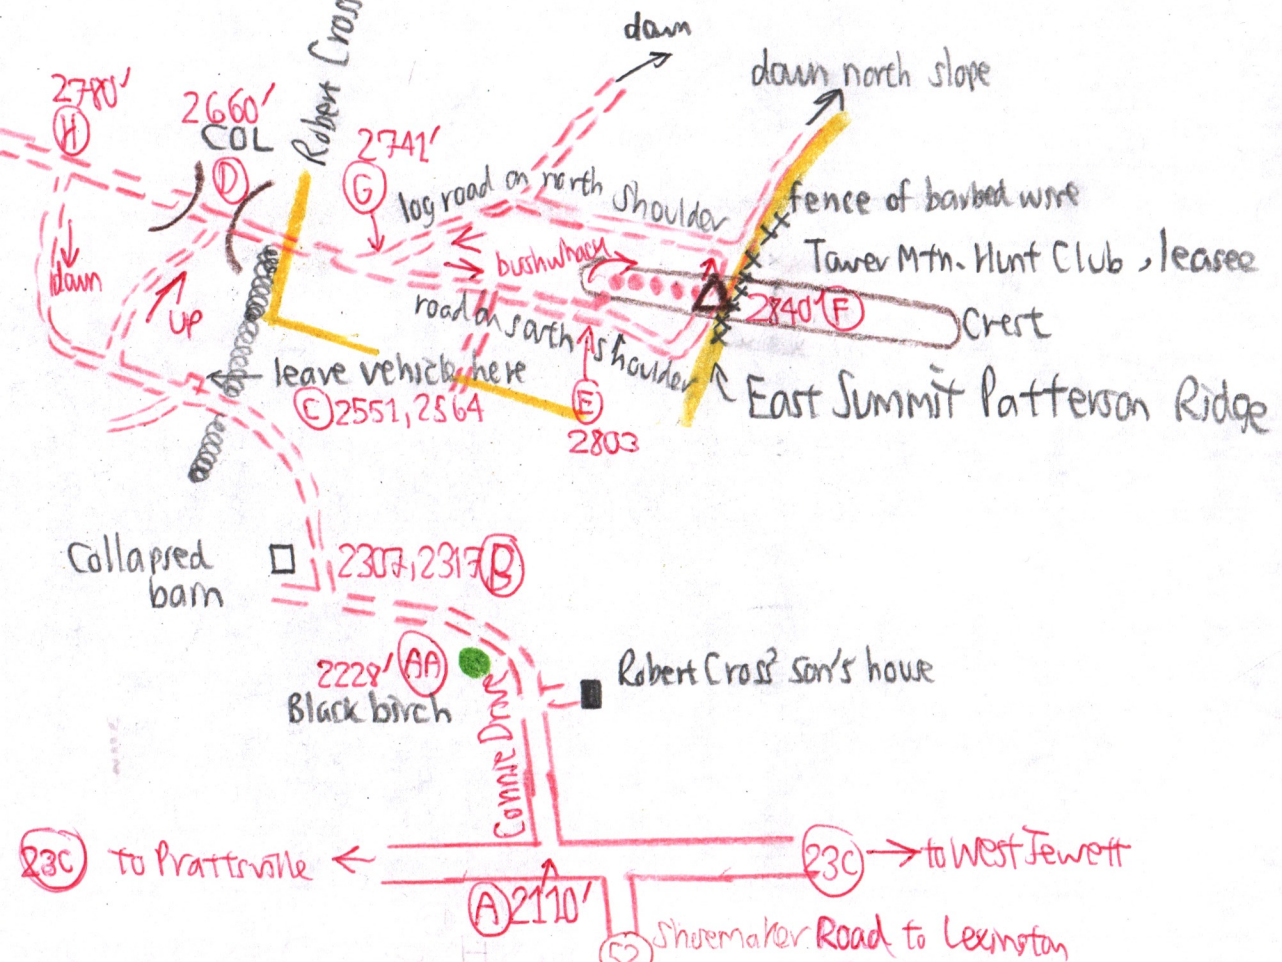 down
Robert Cross
down north slope
2780'
H
2660'
COL
D
2741'
G
log road on north shoulder
fence of barbed wire
bushwhack
Tower Mtn. Hunt Club, leasee
down
up
2840' F
Crest
road on south shoulder
leave vehicle here
C 2551, 2564
E
2803
East Summit Patterson Ridge
Collapsed
barn
2307, 2317 B
2228' AA
Black birch
Robert Cross' son's house
Connie Drive
23C to Prattsville
23C to West Jewett
A 2110'
52 Shoemaker Road to Lexington